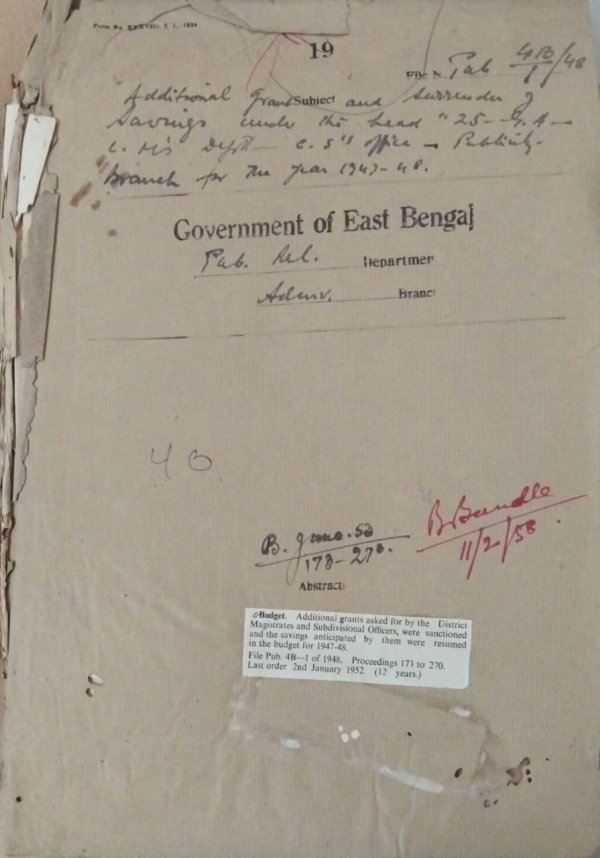 Form No. XXXVIII E. L. 1834
19
File N. Pub 4B/1/48
Subject
Additional grant and surrender of
Savings under the head "25 - G.A -
C. M's Deptt - C. S's office - Publicity
Branch for the year 1947-48.
Government of East Bengal
Pub. Rel. Departmen
Admn. Branc
40
B. June. 53
173-270.
B Bundle
11/2/58
Abstract
Budget. Additional grants asked for by the District
Magistrates and Subdivisional Officers, were sanctioned
and the savings anticipated by them were resumed
in the budget for 1947-48.
File Pub. 4B—1 of 1948. Proceedings 173 to 270.
Last order 2nd January 1952. (12 years.)